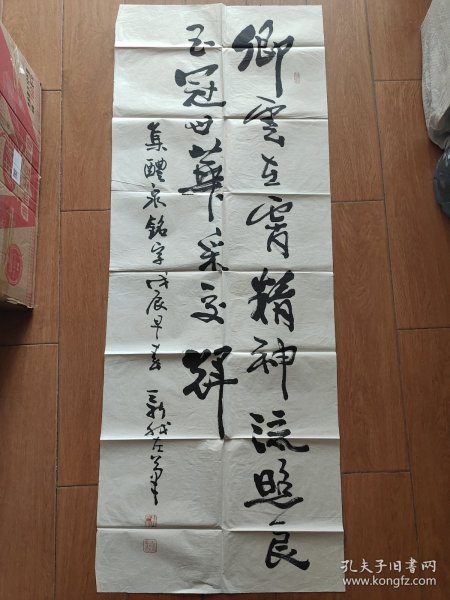 卿雲在霄精神流照良
玉冠世華采交輝
集醴泉銘字戊辰早春新我左筆
孔夫子旧书网
www.kongfz.com